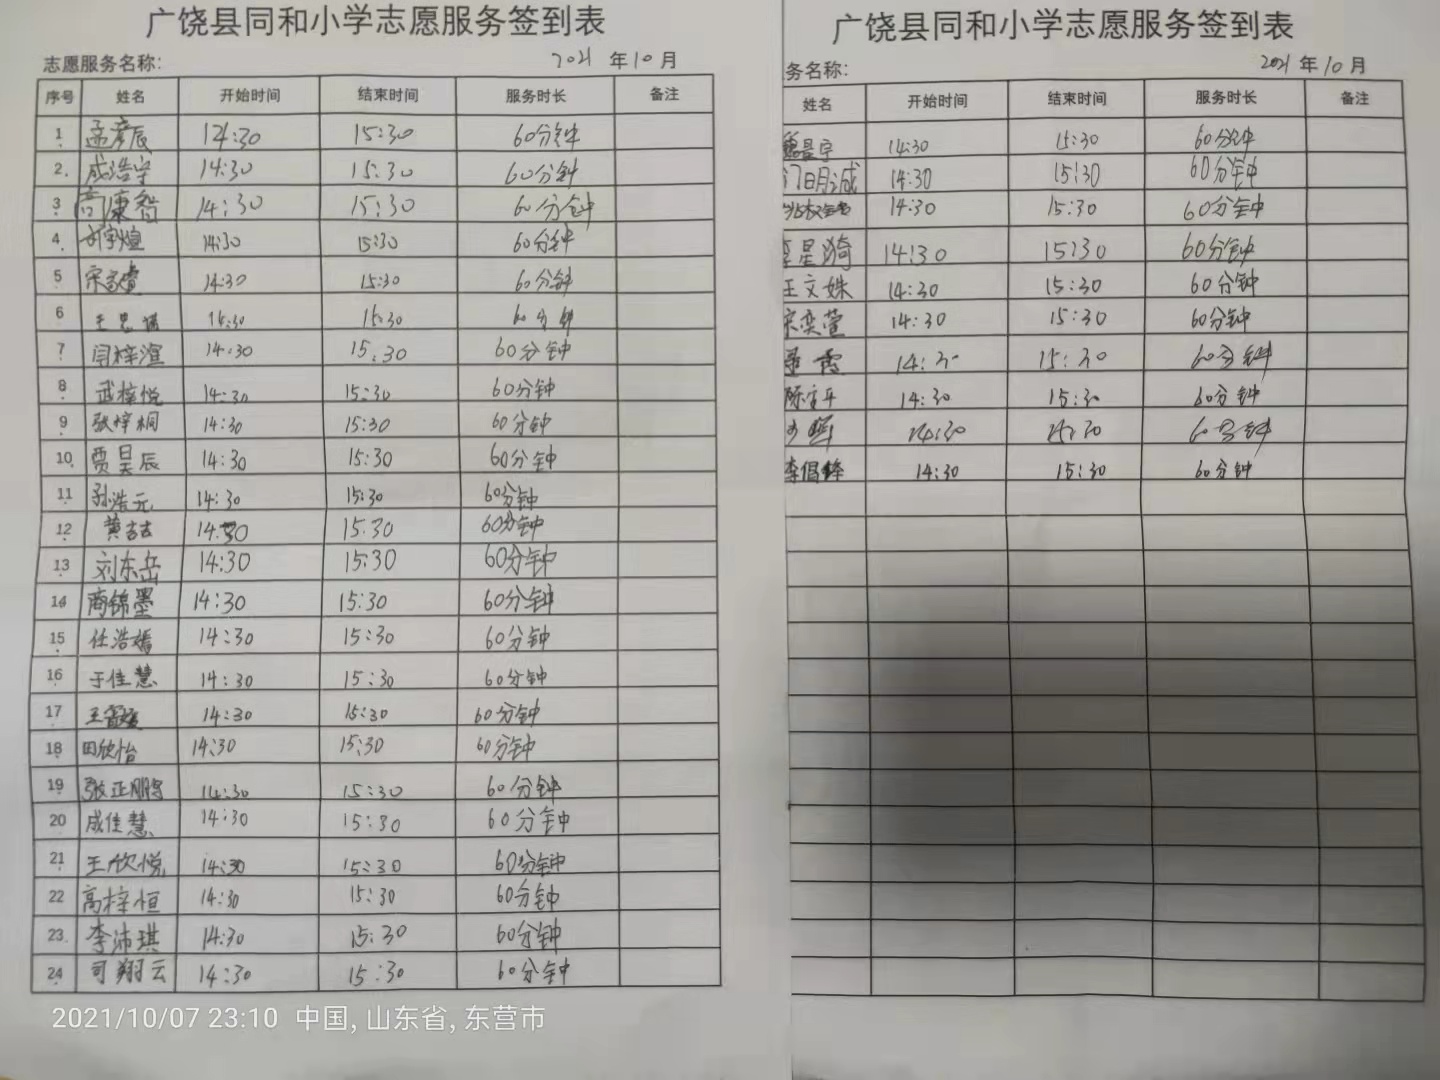 广饶县同和小学志愿服务签到表
志愿服务名称: 2021 年10月
序号 姓名 开始时间 结束时间 服务时长 备注
1 孟彦辰 14:30 15:30 60分钟
2 成浩宇 14:30 15:30 60分钟
3 高康智 14:30 15:30 60分钟
4 刘宇煊 14:30 15:30 60分钟
5 宋家 14:30 15:30 60分钟
6 王思涵 14:30 15:30 60分钟
7 闫梓渲 14:30 15:30 60分钟
8 武梓悦 14:30 15:30 60分钟
9 张梓桐 14:30 15:30 60分钟
10 贾昊辰 14:30 15:30 60分钟
11 孙浩元 14:30 15:30 60分钟
12 黄喆喆 14:30 15:30 60分钟
13 刘东岳 14:30 15:30 60分钟
14 商锦墨 14:30 15:30 60分钟
15 任浩嫣 14:30 15:30 60分钟
16 于佳慧 14:30 15:30 60分钟
17 王 14:30 15:30 60分钟
18 田欣怡 14:30 15:30 60分钟
19 张正鹏 14:30 15:30 60分钟
20 成佳慧 14:30 15:30 60分钟
21 王欣悦 14:30 15:30 60分钟
22 高梓恒 14:30 15:30 60分钟
23 李沛琪 14:30 15:30 60分钟
24 司翔云 14:30 15:30 60分钟
2021/10/07 23:10 中国, 山东省, 东营市
广饶县同和小学志愿服务签到表
务名称: 2021 年10月
姓名 开始时间 结束时间 服务时长 备注
魏星宇 14:30 15:30 60分钟
门明诚 14:30 15:30 60分钟
14:30 15:30 60分钟
李星漪 14:30 15:30 60分钟
王文姝 14:30 15:30 60分钟
宋奕萱 14:30 15:30 60分钟
霞 14:30 15:30 60分钟
陈 14:30 15:30 60分钟
14:30 60分钟
李倡锋 14:30 15:30 60分钟